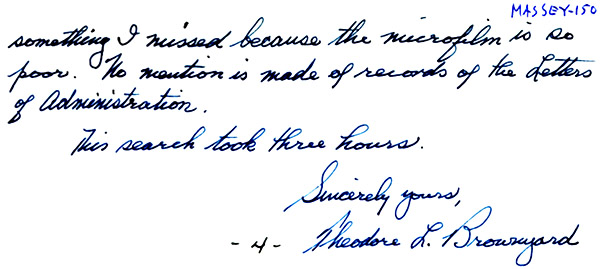 MASSEY-150
something I missed because the microfilm is so
poor. No mention is made of records of the Letters
of Administration.
This search took three hours.
Sincerely yours,
-4- Theodore L. Brownyard